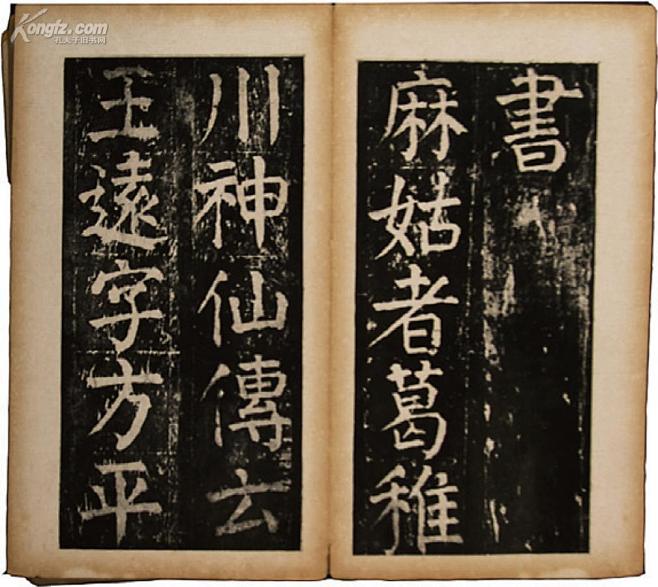 Kongfz.com
孔夫子旧书网
書
麻姑者葛稚
川神仙傳云
王遠字方平